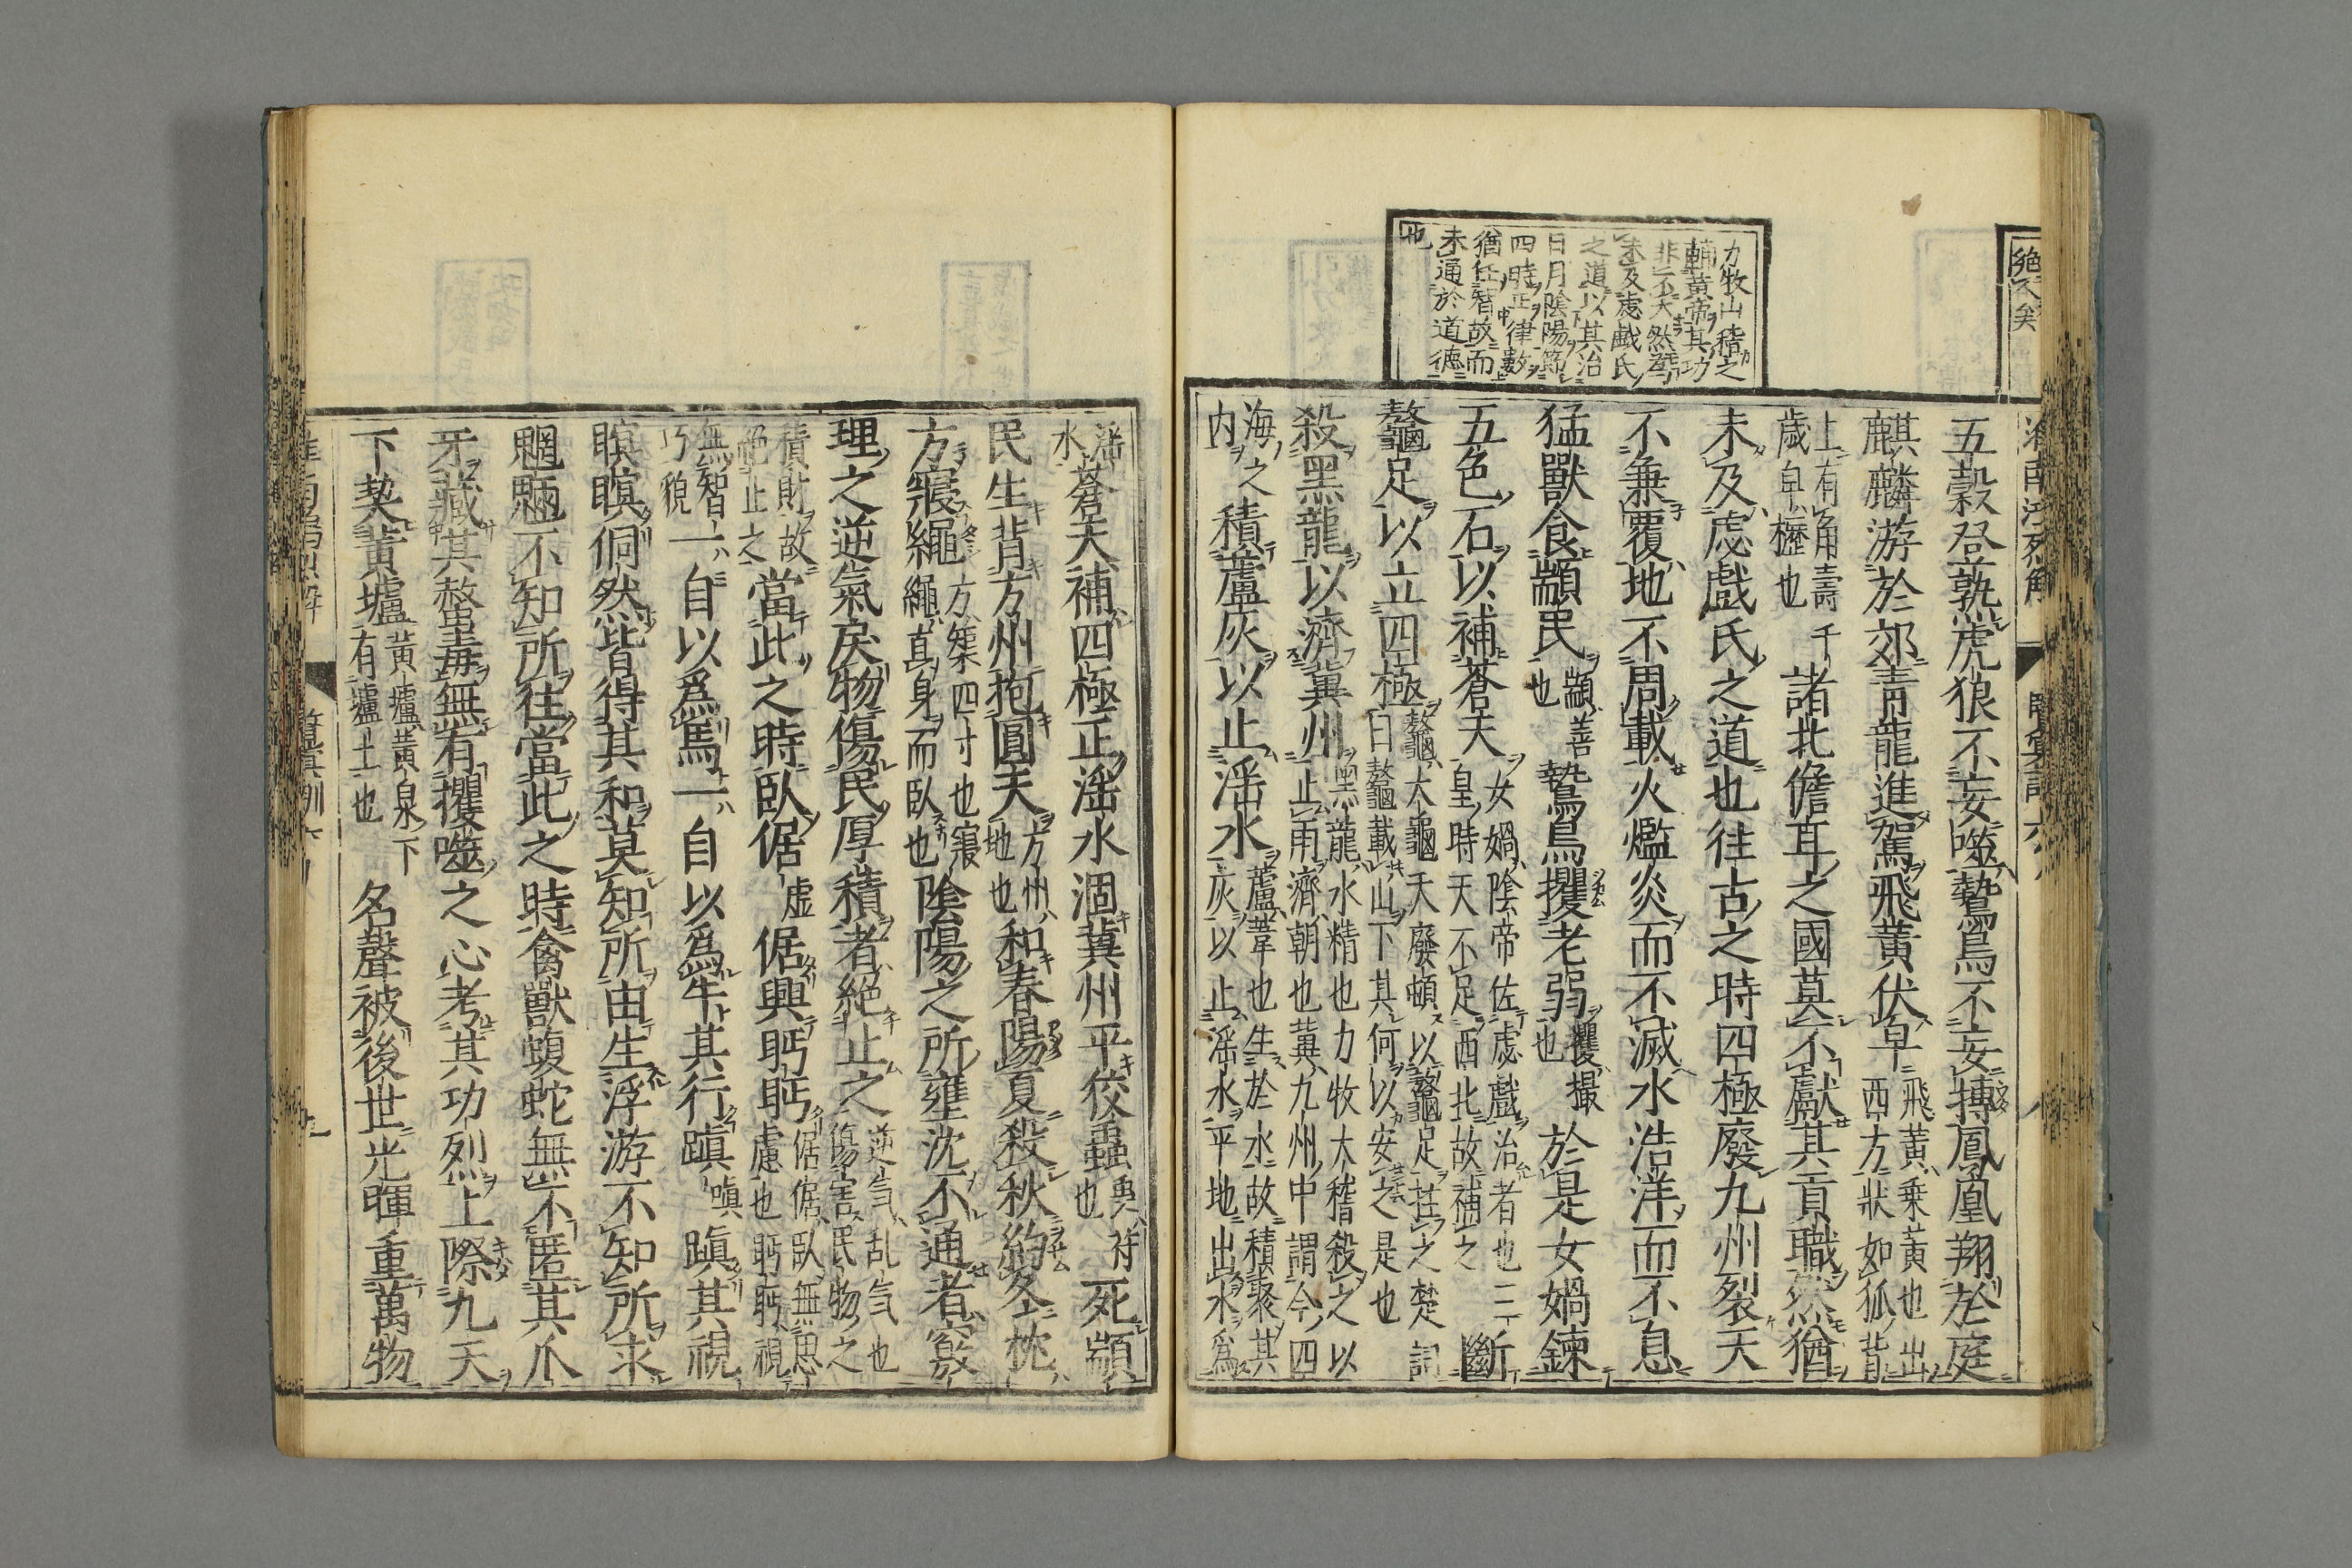 絶不矣
力牧山稽之
輔黄帝其功
非不大然猶
未及虙戯氏
之道以其治
日月陰陽節
四時正律數
猶任智故而
未通於道德
也
五穀登孰虎狼不妄噬鷙鳥不妄搏鳳凰翔於庭
麒麟游於郊青龍進駕飛黄伏皁飛黄乗黄也出西方狀如狐背
上有角壽千歲皁櫪也諸北儋耳之國莫不獻其貢職然猶
未及虙戯氏之道也往古之時四極廢九州裂天
不兼覆地不周載火爁炎而不滅水浩洋而不息
猛獸食顓民顓善也鷙鳥攫老弱攫撮也於是女媧鍊
五色石以補蒼天女媧陰帝佐虙戯治者也三皇時天不足西北故補之斷
鼇足以立四極鼇大龜天廢頓以鼇足拄之楚詞曰鼇載山下其何以安之是也
殺黑龍以濟冀州黑龍水精也力牧大稽殺之以止雨濟朝也冀九州中謂今四
海之内積蘆灰以止淫水蘆葦也生於水故積聚其灰以止淫水平地出水爲
淫水蒼天補四極正淫水涸冀州平佼蟲死顓
民生背方州抱圓天方州地也和春陽夏殺秋約冬枕
方寢繩方榘四寸也寢繩直身而臥也陰陽之所壅沈不通者竅
理之逆氣戾物傷民厚積者絶止之逆気乱気也傷害民物之
積財故絶止之當此之時臥倨倨興眄眄倨倨臥無思慮也眄眄視
無智巧貌一自以爲馬一自以爲牛其行蹎蹎其視
瞑瞑侗然皆得其和莫知所由生浮游不知所求
魍魎不知所往當此之時禽獸蝮蛇無不匿其爪
牙藏其螫毒無有攫噬之心考其功烈上際九天
下契黄壚黄壚黄泉下有壚土也名聲被後世光暉重萬物